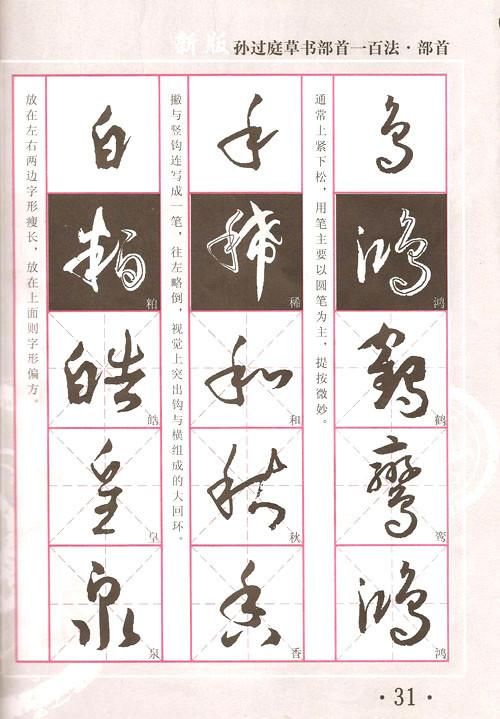 新版 孙过庭草书部首一百法·部首
鸟
鸿
鸿
鹤
鹤
鸾
鸾
鸿
鸿
通常上紧下松，用笔主要以圆笔为主，提按微妙。
禾
稀
稀
和
和
秋
秋
香
香
撇与竖钩连写成一笔，往左略倒，视觉上突出钩与横组成的大回环。
白
粕
粕
皓
皓
皇
皇
泉
泉
放在左右两边字形瘦长，放在上面则字形偏方。
·31·